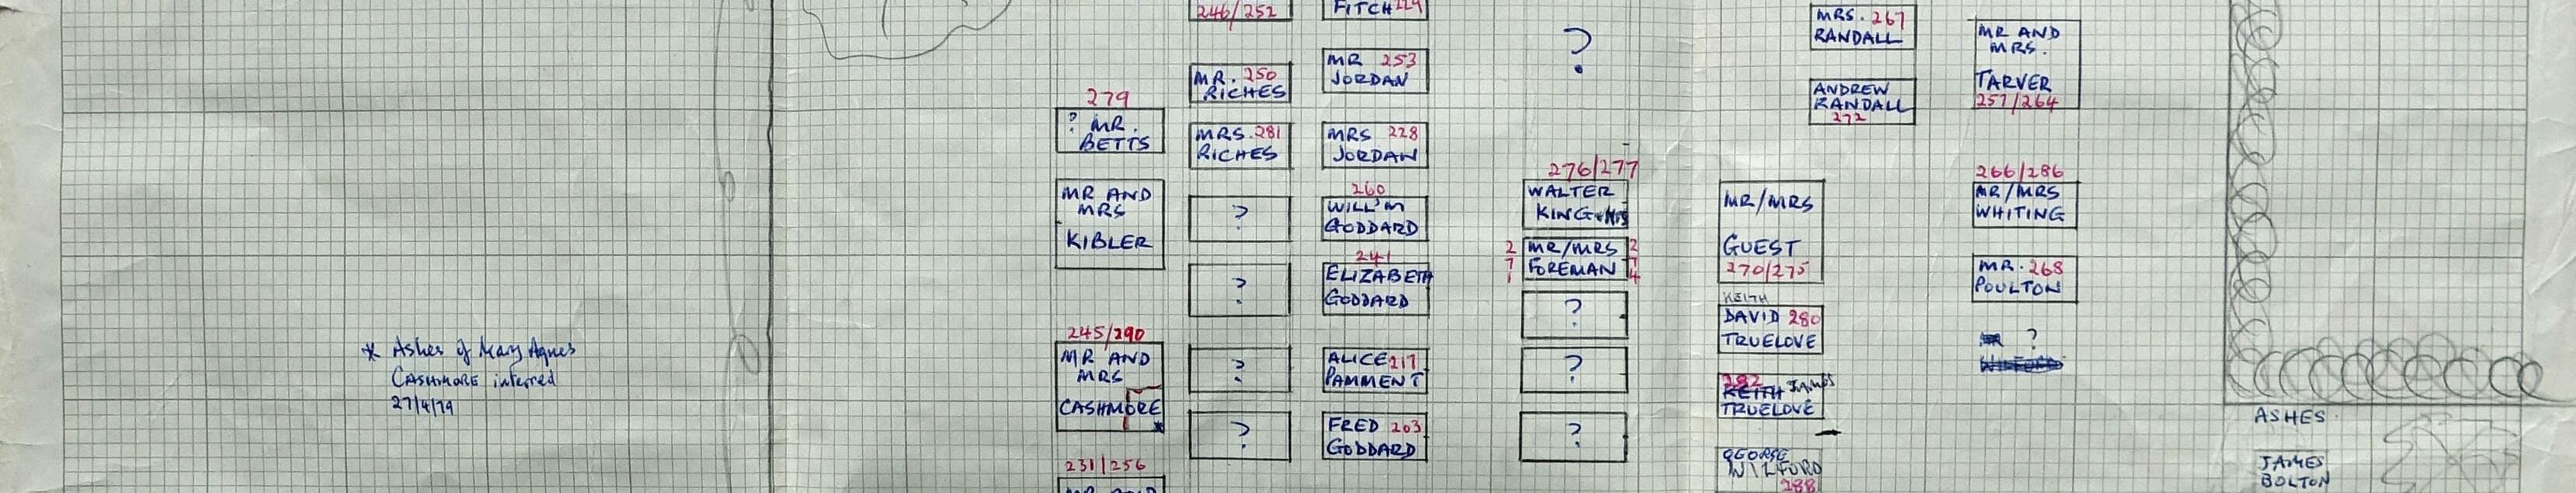 246/252
FITCH 229
MRS. 267
RANDALL
MR AND
MRS.
TARVER
257/264
?
MR 253
JORDAN
MR. 250
RICHES
ANDREW
RANDALL
272
279
? MR.
BETTS
MRS. 281
RICHES
MRS 228
JORDAN
276/277
WALTER
KING + MRS
266/286
MR/MRS
WHITING
MR AND
MRS
KIBLER
?
260
WILL'M
GODDARD
MR/MRS
GUEST
270/275
271
MR/MRS
FOREMAN
274
?
241
ELIZABETH
GODDARD
MR. 268
POULTON
?
KEITH
DAVID 280
TRUELOVE
?
245/290
MR AND
MRS
CASHMORE
*
* Ashes of Mary Agnes
CASHMORE interred
27/4/79
?
ALICE 217
PAMMENT
?
282
KEITH JAMES
TRUELOVE
?
FRED 203
GODDARD
?
ASHES
231/256
GEORGE
WILFORD
288
JAMES
BOLTON